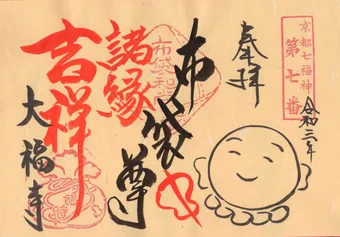 京都七福神
第七番
令和三年
奉拝
布袋尊
諸縁
吉祥
大福寺